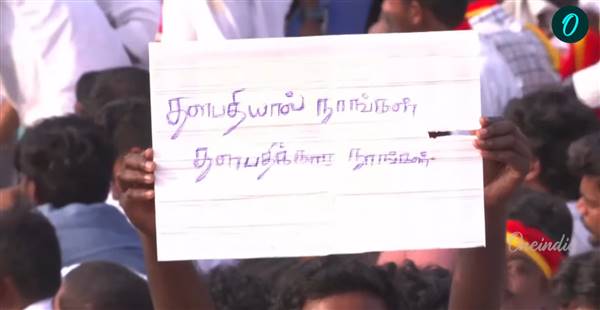 தளபதியால் நாங்கள்
தளபதிக்காக நாங்கள்
Oneindi